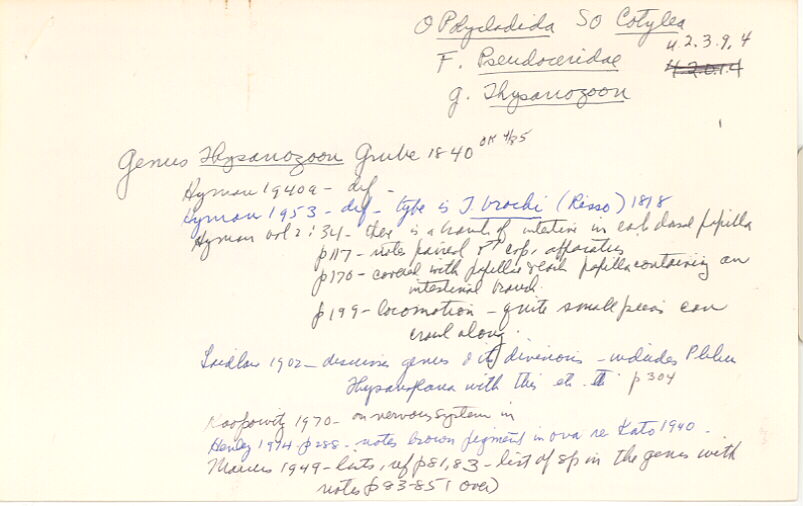 O Polycladida SO Cotylea
F. Pseudoceridae 4.2.3.9.4
g. Thysanozoon 4.2.0.1.4
Genus Thysanozoon Grube 1840 OK 4/85
Hyman 1940a - def -
Hyman 1953 - def - type is T. brochi (Risso) 1818
Hyman vol 2: 34 - there is a branch of intestine in each dorsal papilla
p117 - notes paired ♂ cop. apparatus
p170 - covered with papillae & each papilla containing an
intestinal branch.
p199 - locomotion - quite small pieces can
crawl along.
Laidlaw 1902 - discusses genus & its divisions - includes
with this etc. p 304
Koopowitz 1970 - on nervous system in
Henley 1974 p288 - notes brown pigment in ova re Kato 1940.
Marcus 1949 - lists, ref p81,83 - list of sp in the genus with
notes p83-85 (over)